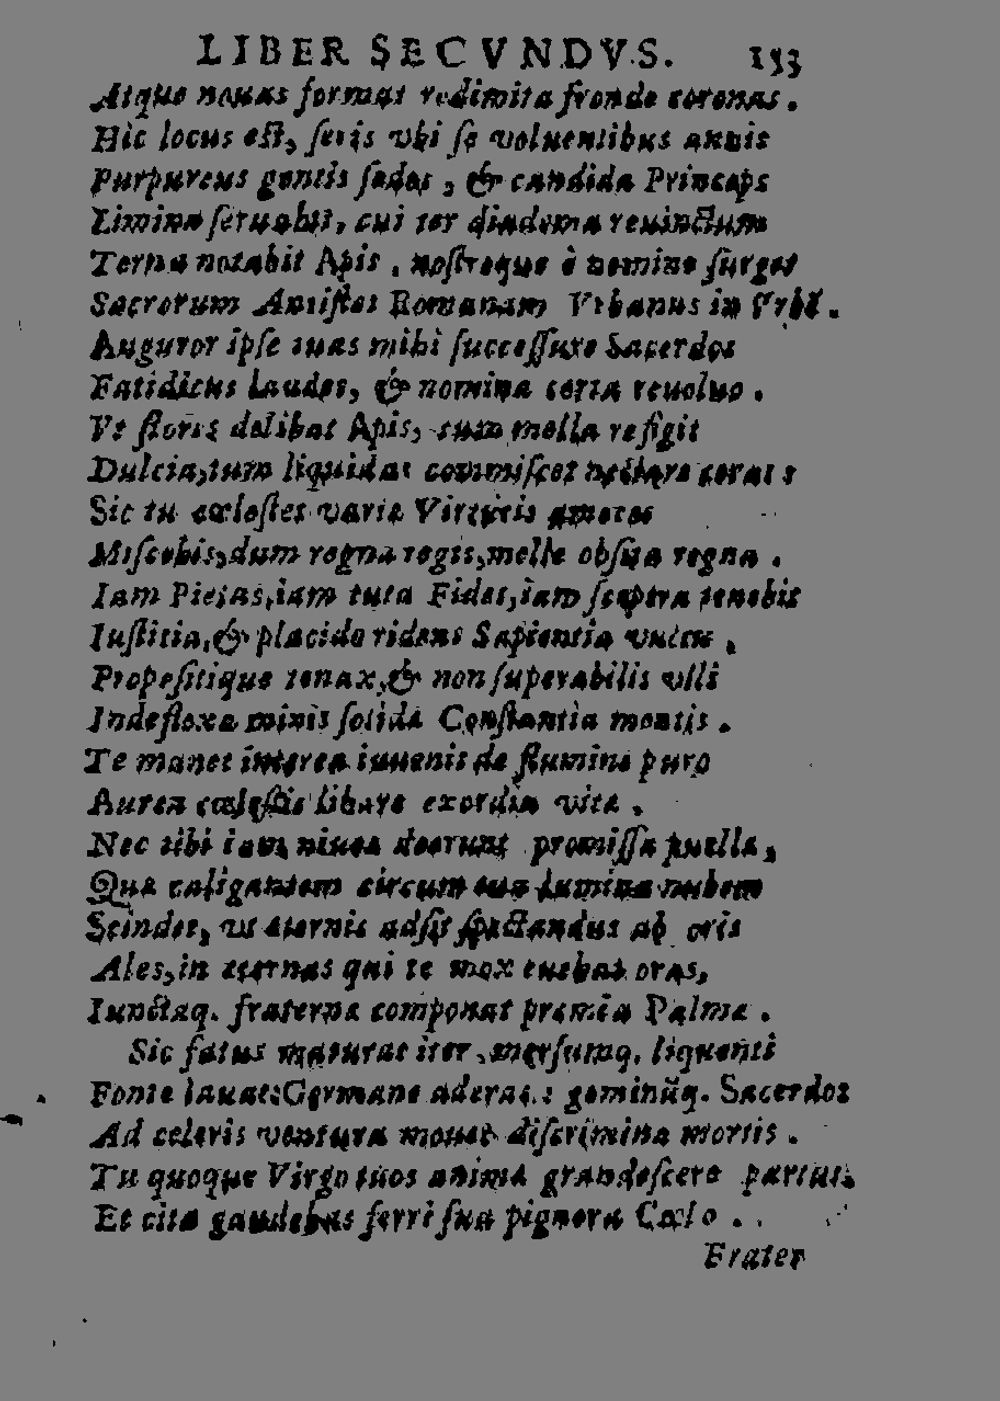 LIBER SECVNDVS. 153
Atque nouas format redimita fronde coronas.
Hic locus est, seris vbi se voluentibus annis
Purpureus gentis sedes, & candida Princeps
Limina seruabit, cui ter diadema reuinctum
Terna notabit Apis, nostroque è nomine surget
Sacrorum Antistes Romanam Vrbanus in Vrbē.
Auguror ipse tuas mihi successure Sacerdos
Fatidicus laudes, & nomina certa reuoluo.
Vt flores delibat Apis, cum mella refigit
Dulcia, tum liquidas commiscet nectare ceras:
Sic tu cœlestes variæ Virtutis amores
Miscebis, dum regna regis, melle obsita regna.
Iam Pietas, iam tuta Fides, iam sceptra tenebit
Iustitia, & placido ridens Sapientia vultu.
Propositique tenax, & non superabilis vlli
Indeflexa minis solida Constantia mentis.
Te manet interea iuuenis de flumine puro
Aurea cœlestis libare exordia vitæ.
Nec tibi iam niuea deerunt promissa puellæ,
Quæ caligantem circum tua lumina nubem
Scindet, vt æternis adsit spectandus ab oris
Ales, in æternas qui te mox euehat oras,
Iunctaq. fraternæ componat præmia Palmæ.
Sic fatus maturat iter, mersumq. liquenti
Fonte lauat: Germane aderas: geminūq. Sacerdos
Ad celeris ventura mouet discrimina mortis.
Tu quoque Virgo tuos anima grandescere partus,
Et cito gaudebas ferri sua pignora Cœlo.
Frater